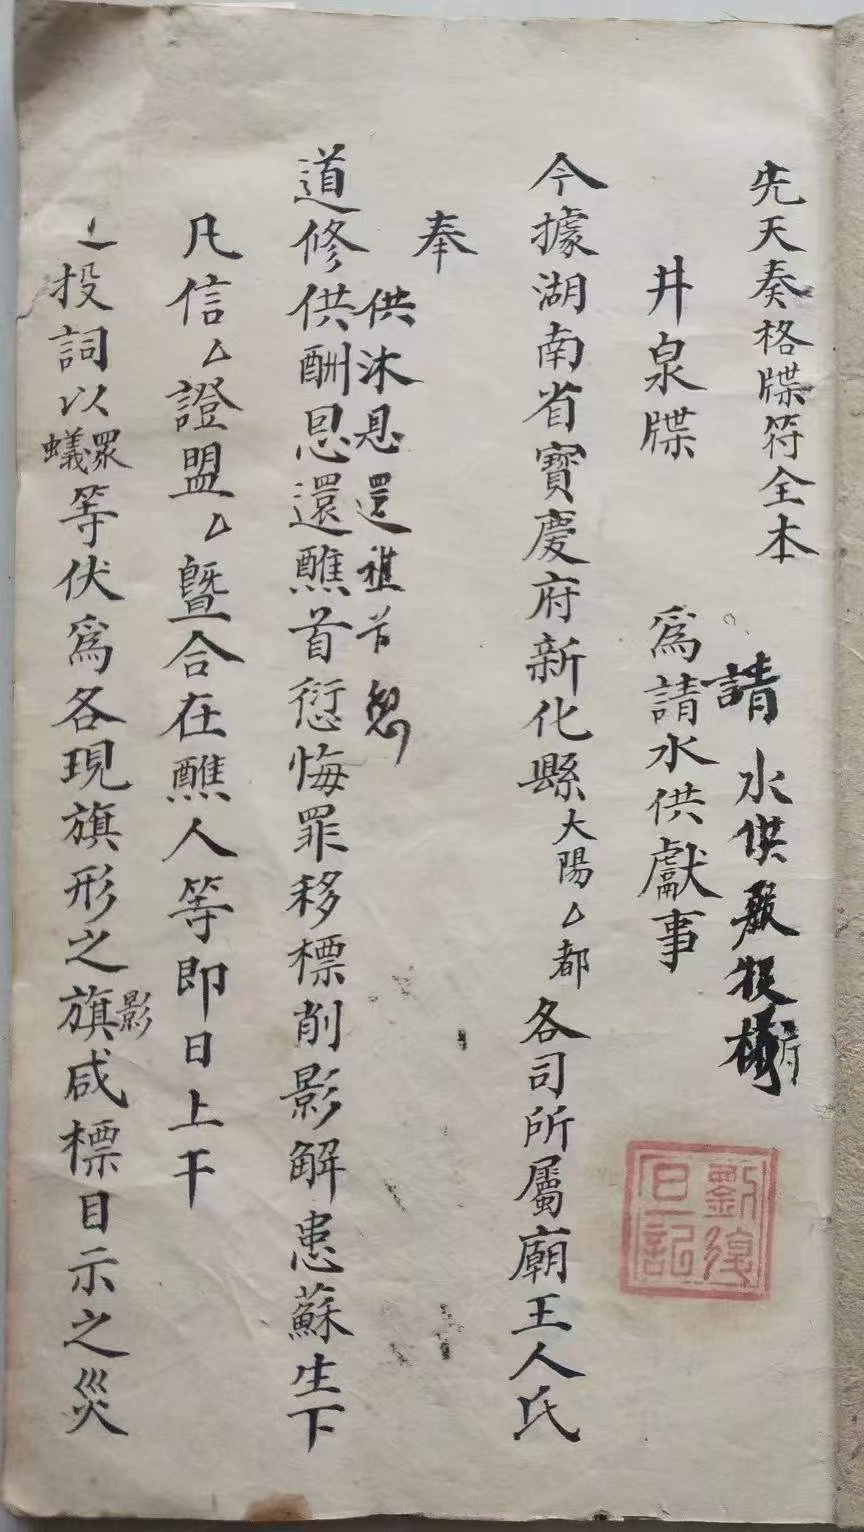 先天奏格牒符全本
請水供献投様
井泉牒 為請水供獻事
今據湖南省寳慶府新化縣大陽厶都各司所屬廟王人氏
奉
供沐恩還醮首愆
道修供酬恩還醮首愆悔罪移標削影解患蘇生下
凡信厶證盟厶暨合在醮人等即日上干
投詞以蟻眾等伏為各現旗形之旗影咸標目示之災
劉復旦記